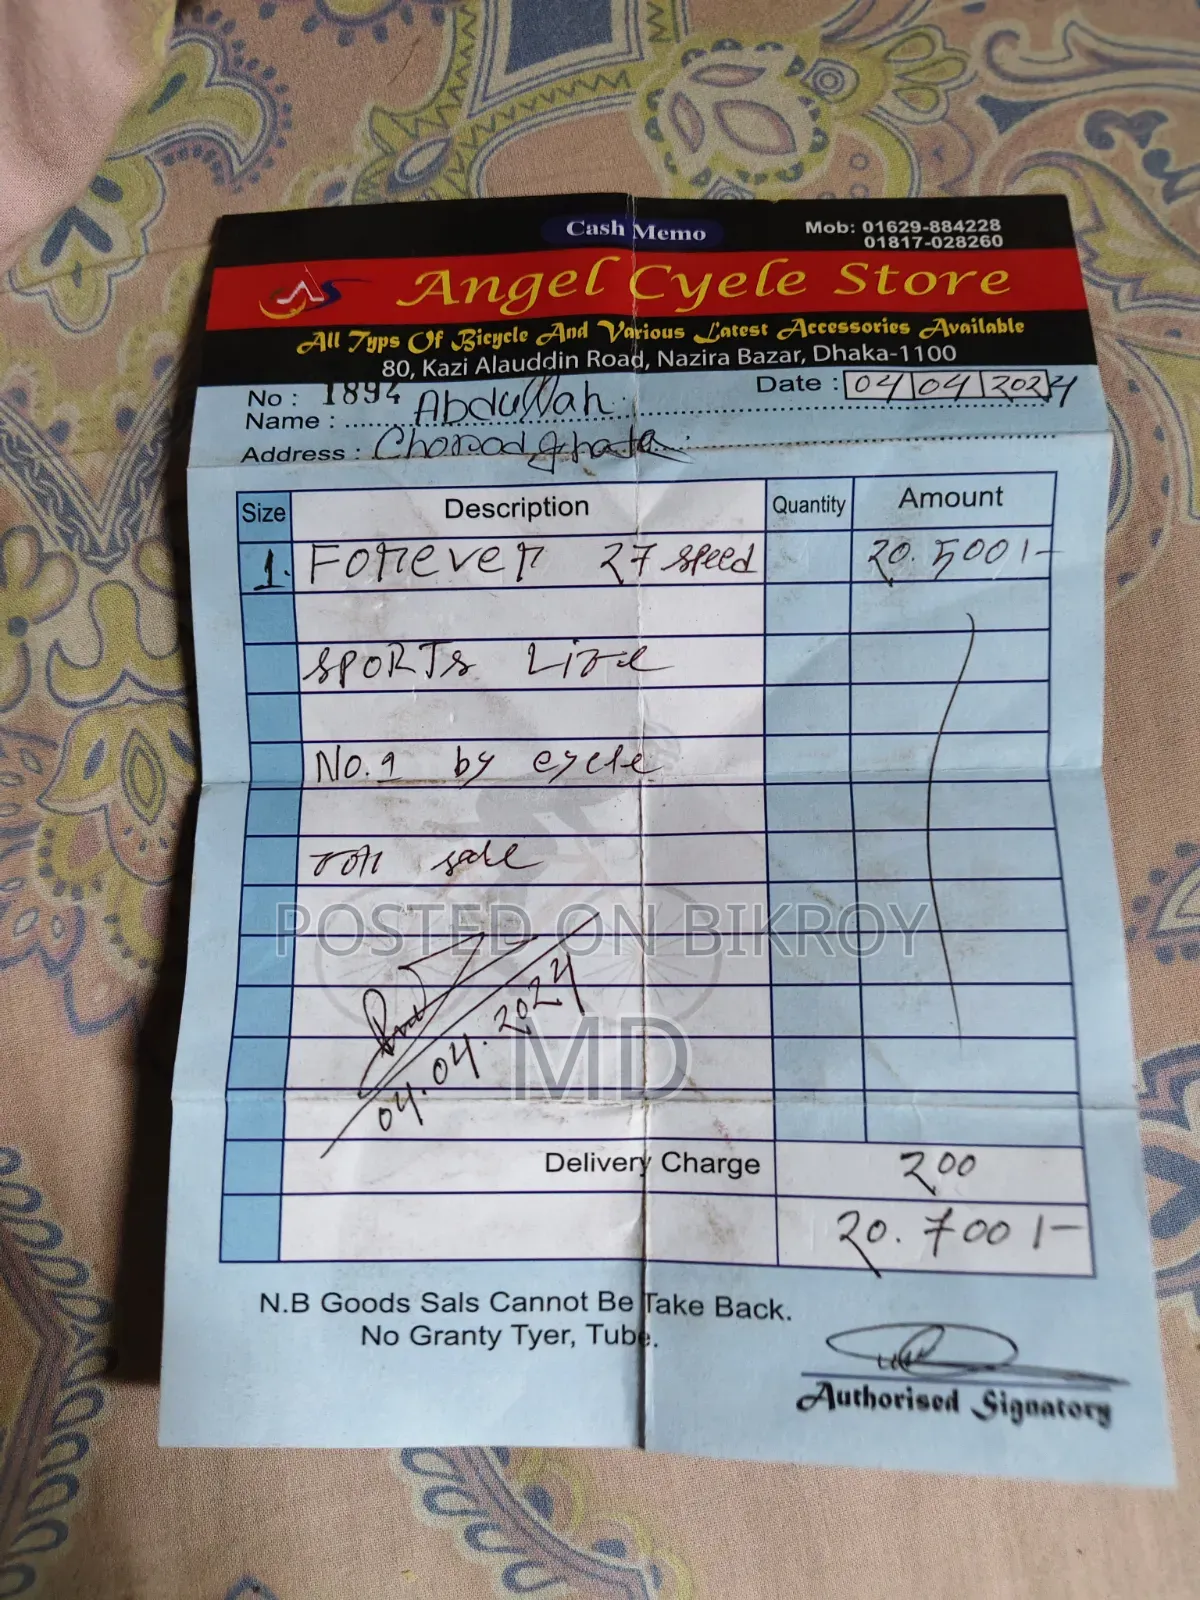 Cash Memo
Mob: 01629-884228
01817-028260
Angel Cyele Store
All Typs Of Bicycle And Various Latest Accessories Available
80, Kazi Alauddin Road, Nazira Bazar, Dhaka-1100
No : 1894
Date : 04 04 2024
Name : Abdullah
Address :
Size Description Quantity Amount
1. Forever 27 speed 20.500/-
SPORTS
No.1 by cycle
sale
POSTED ON BIKROY
04.04.2024
MD
Delivery Charge 200
20.700/-
N.B Goods Sals Cannot Be Take Back.
No Granty Tyer, Tube.
Authorised Signatory